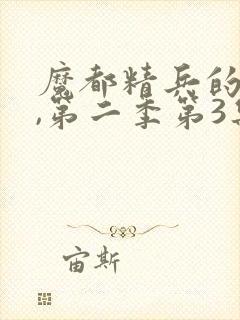 魔都精兵的
,第二季第3
宙斯